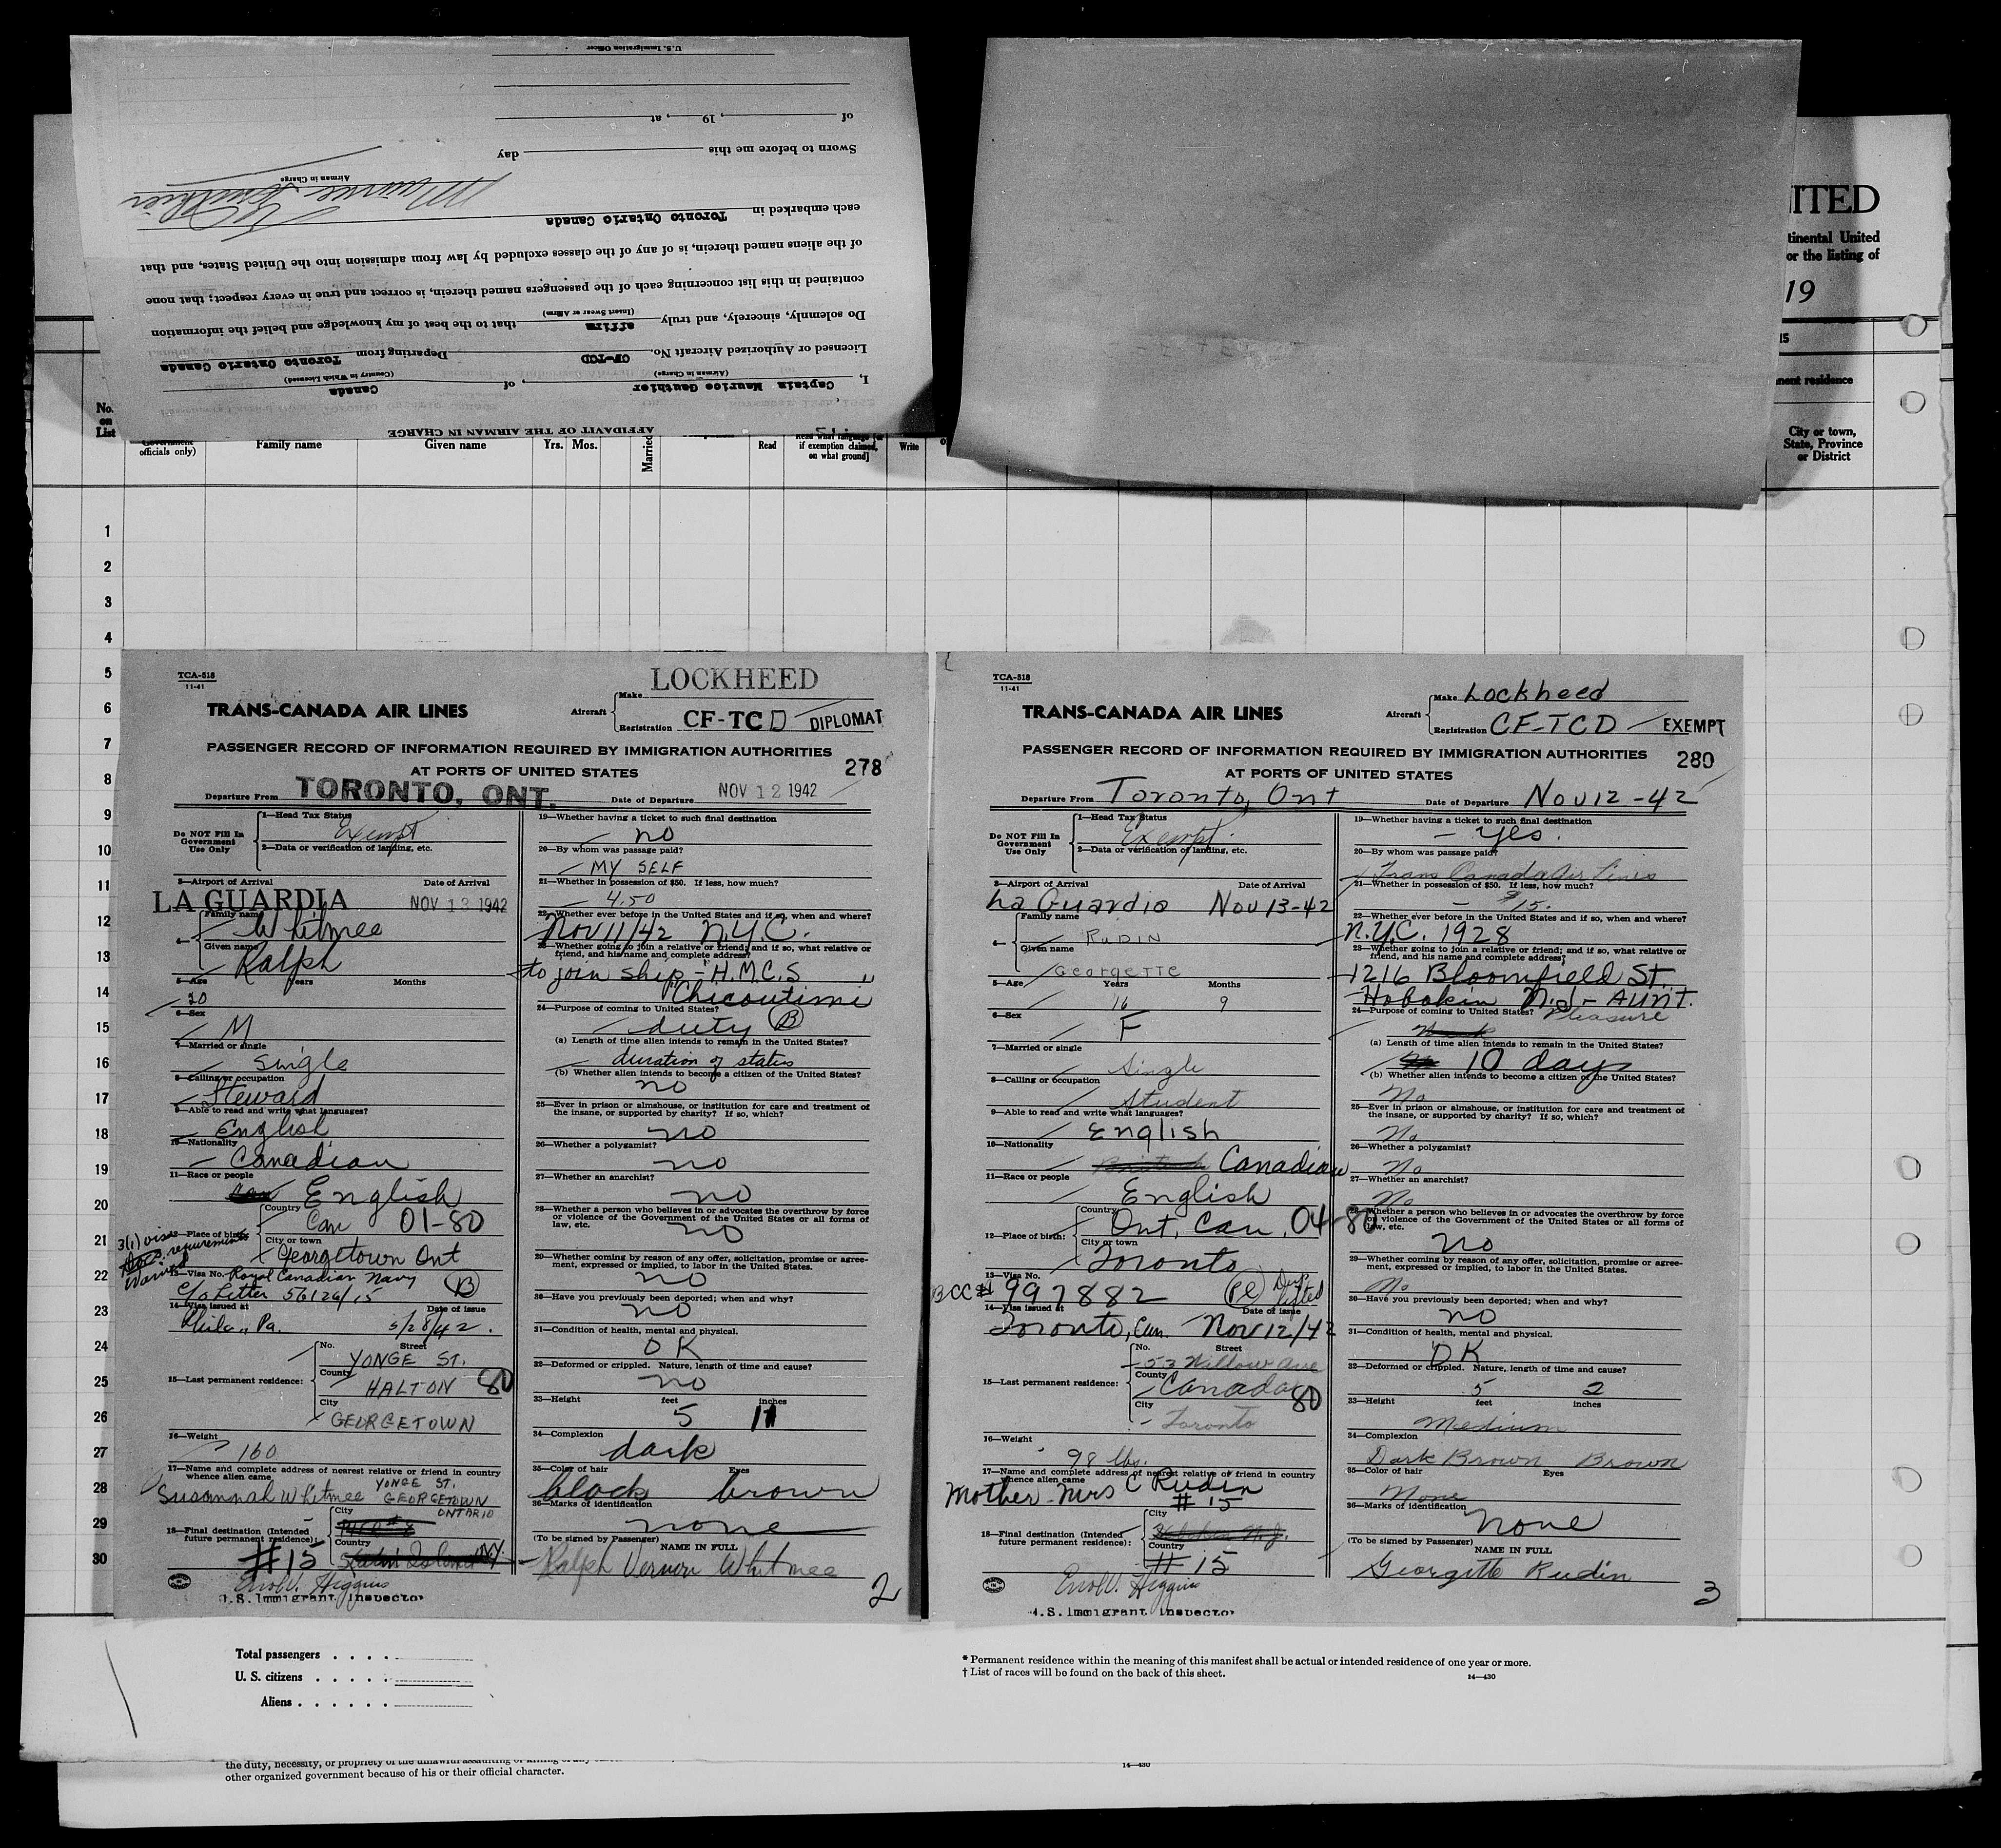 U.S. Immigration Officer
of , 19 , at
Sworn to before me this day
Airman in Charge
each embarked in Toronto Ontario Canada
of the aliens named therein, is of any of the classes excluded by law from admission into the United States, and that
contained in this list concerning each of the passengers named therein, is correct and true in every respect; that none
(Insert Swear or Affirm)
Do solemnly, sincerely, and truly affirm that to the best of my knowledge and belief the information
Licensed or Authorized Aircraft No. CF-TCD Departing from Toronto Ontario Canada
(Airman in Charge) (Country in Which Licensed)
I, Captain Maurice Gauthier, of Canada
AFFIDAVIT OF THE AIRMAN IN CHARGE
ITED
tinental United
or the listing of
19
15
nent residence
City or town,
State, Province
or District
No.
on
List
officials only)
Family name
Given name
Yrs. Mos.
Married
Read
Read what language [or
if exemption claimed,
on what ground]
Write
1
2
3
4
5
6
7
8
9
10
11
12
13
14
15
16
17
18
19
20
21
22
23
24
25
26
27
28
29
30
TCA-518
11-41
LOCKHEED
TRANS-CANADA AIR LINES
Aircraft Make
Registration CF-TCD DIPLOMAT
PASSENGER RECORD OF INFORMATION REQUIRED BY IMMIGRATION AUTHORITIES
AT PORTS OF UNITED STATES 278
Departure From TORONTO, ONT. Date of Departure NOV 12 1942
Do NOT Fill In
Government
Use Only
1—Head Tax Status
Exempt
2—Data or verification of landing, etc.
3—Airport of Arrival Date of Arrival
LA GUARDIA NOV 13 1942
4— Family name
Whitmee
Given name
Ralph
5—Age Years Months
20
6—Sex
M
7—Married or single
Single
8—Calling or occupation
Steward
9—Able to read and write what languages?
English
10—Nationality
Canadian
11—Race or people
English
12—Place of birth: Country
Can 01-80
City or town
Georgetown Ont
3(1) visa
requirements
waived
13—Visa No. Royal Canadian Navy
c/o Letter 56126/15 (B)
14—Visa issued at Date of issue
Phila., Pa. 5/28/42.
15—Last permanent residence:
No. Street
YONGE ST.
County
HALTON 80
City
GEORGETOWN
16—Weight
160
17—Name and complete address of nearest relative or friend in country
whence alien came
YONGE ST.
Susannah Whitmee GEORGETOWN
ONTARIO
18—Final destination (Intended
future permanent residence):
City
Country
#15 Staten Island N.Y.
Errol V. Higgins
U.S. Immigrant Inspector
19—Whether having a ticket to such final destination
no
20—By whom was passage paid?
MY SELF
21—Whether in possession of $50. If less, how much?
4.50
22—Whether ever before in the United States and if so, when and where?
Nov 11/42 N.Y.C.
23—Whether going to join a relative or friend; and if so, what relative or
friend, and his name and complete address?
to join ship - H.M.C.S
"Chicoutimi"
24—Purpose of coming to United States?
duty (B)
(a) Length of time alien intends to remain in the United States?
duration of states
(b) Whether alien intends to become a citizen of the United States?
no
25—Ever in prison or almshouse, or institution for care and treatment of
the insane, or supported by charity? If so, which?
no
26—Whether a polygamist?
no
27—Whether an anarchist?
no
28—Whether a person who believes in or advocates the overthrow by force
or violence of the Government of the United States or all forms of
law, etc.
no
29—Whether coming by reason of any offer, solicitation, promise or agree-
ment, expressed or implied, to labor in the United States.
no
30—Have you previously been deported; when and why?
no
31—Condition of health, mental and physical.
OK
32—Deformed or crippled. Nature, length of time and cause?
no
33—Height feet inches
5 11
34—Complexion
dark
35—Color of hair Eyes
black brown
36—Marks of identification
none
(To be signed by Passenger) NAME IN FULL
Ralph Vernon Whitmee
2
TCA-518
11-41
TRANS-CANADA AIR LINES
Aircraft Make Lockheed
Registration CF-TCD EXEMPT
PASSENGER RECORD OF INFORMATION REQUIRED BY IMMIGRATION AUTHORITIES
AT PORTS OF UNITED STATES 280
Departure From Toronto, Ont Date of Departure Nov 12-42
Do NOT Fill In
Government
Use Only
1—Head Tax Status
Exempt.
2—Data or verification of landing, etc.
3—Airport of Arrival Date of Arrival
La Guardia Nov 13-42
4— Family name
RUDIN
Given name
Georgette
5—Age Years Months
16 9
6—Sex
F
7—Married or single
Single
8—Calling or occupation
Student
9—Able to read and write what languages?
English
10—Nationality
Canadian
11—Race or people
English
12—Place of birth: Country
Ont, Can. 04-80
City or town
Toronto
13—Visa No.
BCC# 997882
14—Visa issued at Date of issue
Toronto, Can. Nov 12/42
15—Last permanent residence:
No. Street
53 Willow Ave
County
Canada 80
City
Toronto
16—Weight
98 lbs.
17—Name and complete address of nearest relative or friend in country
whence alien came
Mother - Mrs C Rudin
#15
18—Final destination (Intended
future permanent residence):
City
Hoboken N.J.
Country
#15
Errol V. Higgins
U.S. Immigrant Inspector
19—Whether having a ticket to such final destination
- yes.
20—By whom was passage paid?
Trans Canada Air Lines
21—Whether in possession of $50. If less, how much?
- $15.
22—Whether ever before in the United States and if so, when and where?
N.Y.C. 1928
23—Whether going to join a relative or friend; and if so, what relative or
friend, and his name and complete address?
1216 Bloomfield St.
Hobokin N.J - AUNT.
24—Purpose of coming to United States? Pleasure
(a) Length of time alien intends to remain in the United States?
10 days
(b) Whether alien intends to become a citizen of the United States?
No
25—Ever in prison or almshouse, or institution for care and treatment of
the insane, or supported by charity? If so, which?
No
26—Whether a polygamist?
No
27—Whether an anarchist?
No
28—Whether a person who believes in or advocates the overthrow by force
or violence of the Government of the United States or all forms of
law, etc.
no
29—Whether coming by reason of any offer, solicitation, promise or agree-
ment, expressed or implied, to labor in the United States.
No
30—Have you previously been deported; when and why?
no
31—Condition of health, mental and physical.
OK
32—Deformed or crippled. Nature, length of time and cause?
5 2
33—Height feet inches
Medium
34—Complexion
Dark Brown Brown
35—Color of hair Eyes
None
36—Marks of identification
none
(To be signed by Passenger) NAME IN FULL
Georgette Rudin
3
Total passengers
U. S. citizens
Aliens
* Permanent residence within the meaning of this manifest shall be actual or intended residence of one year or more.
† List of races will be found on the back of this sheet.
14—430
the duty, necessity, or propriety of the unlawful assaulting or killing of any
other organized government because of his or their official character.
14—430